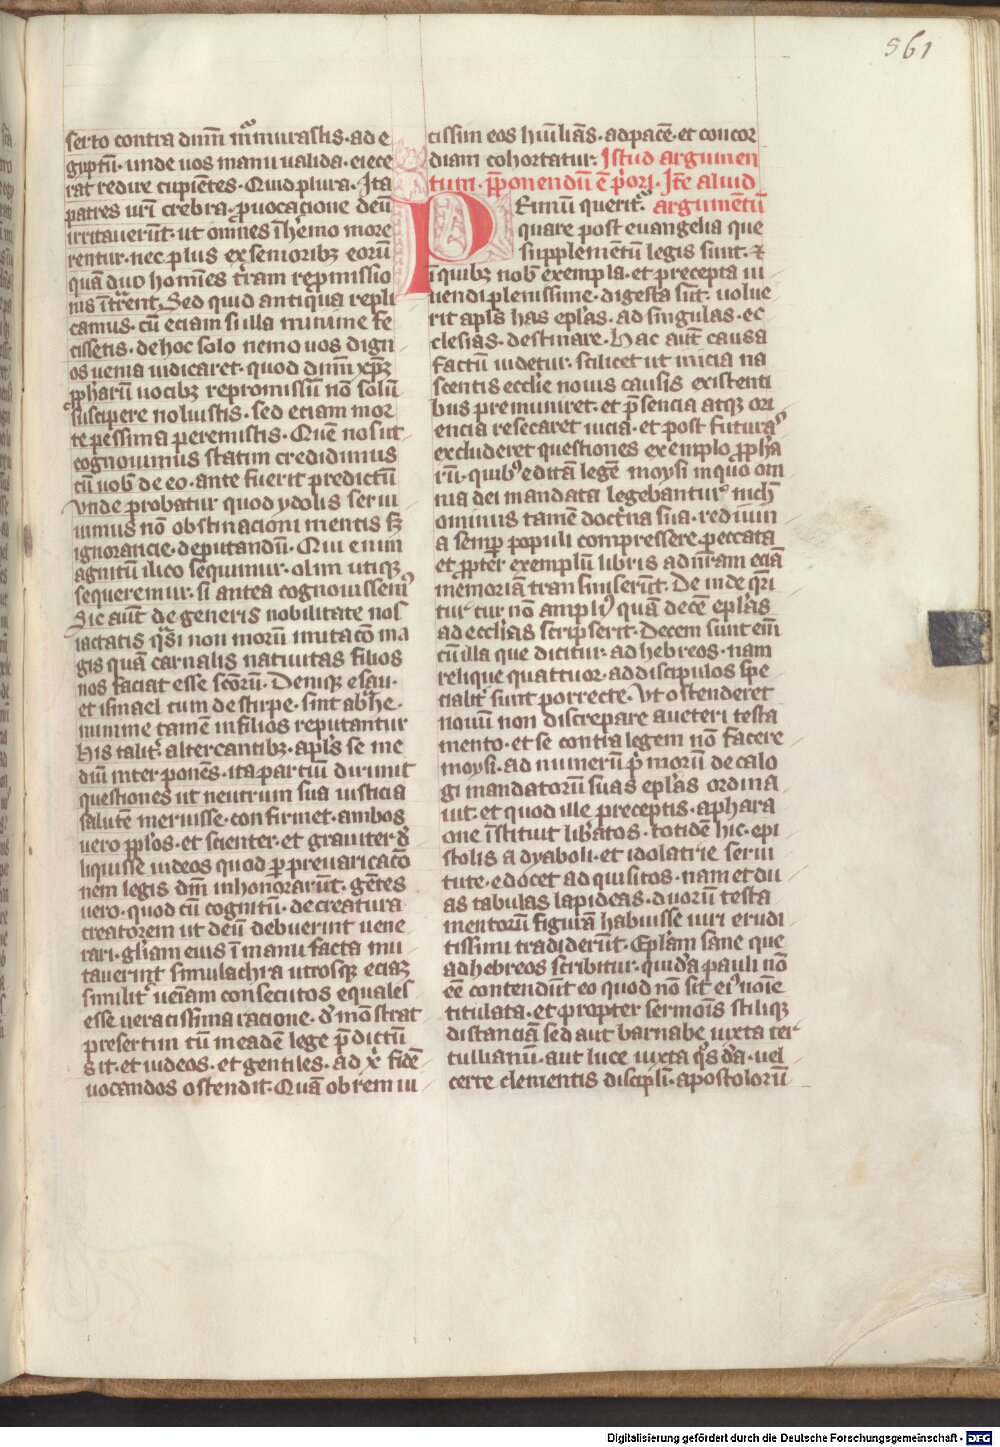 561
serto contra dnm̄ mᷣmurastis · ad e
gyptū · unde uos manu ualida · eiece
rat redire cupientes · Quid plura · Ita
patres urī crebra · ꝓuocacione deū
irritauerūt · ut om̄nes ī hᷣemo more
rentur · nec plus ex senioribꝫ eorū
quā duo homīes tr̄am repromissio
nis ītrarēt · Sed quid antiqua repli
camus · cū eciam si illa minime fe
cissetis · de hoc solo nemo uos dign
os uenia iudicaret · quod dnm̄ xpm̄
ꝓpharū uocibꝫ repromissū nō solū
suscipere noluistis · sed eciam mor
te pessima peremistis · Quē nos ut
cognouimus statim credidimus
cū uob̄ de eo · ante fuerit predictū
Vnde probatur quod ydolis serui
uimus nō obstinacioni mentis sꝫ
ignorancie · deputandū · Qui enim
agnitū ilico sequimur · olim utiqꝫ
sequeremur · si antea cognouissemꝰ
Sic aūt de generis nobilitate nos
iactatis qᷣsi non morū imutacō ma
gis quā carnalis natiuitas filios
nos faciat esse scōrū · Deniqꝫ esau ·
et ismael cum de stirpe · sint abᷣhe ·
minime tamē in filios reputantur
His talitᷣ altercantibꝫ · apls̄ se me
diū interponēs · ita partiū dirimit
questiones ut neutrum sua iusticia
salutē meruisse · confirmet · ambos
uero ꝓplos · et scienter · et grauiter dᷣ
liquisse iudeos quod per preuaricacō
nem legis dm̄ inhonorarūt · gētes
uero · quod cū cognitū · de creatura
creatorem ut deū debuerint uene
rari · glīam eius ī manu facta mu
tauerint simulachra utrosqꝫ eciaꝫ
similitᷣ ueīam consecutos equales
esse ueracissima racione · dᷣmōstrat
presertim cū in eadē lege p̄dictū
sit · et iudeos · et gentiles · ad x̄ fidē
uocandos ostendit · Quā ob rem ui
cissim eos hūilīās · ad pacē · et concor
diam cohortatur · Istud argumen
tum · p̄ponendū ē pᷣori · Itē aliud
argumētū
PRimū queritᷣ
quare post euangelia que
supplemētū legis sunt · ⁊
ī quibꝫ nob̄ exempla · et precepta ui
uendi plenissime · digesta sūt · uolue
rit apls̄ has epl̄as · ad singulas · ec
clesias · destinare · Hac aūt causa
factū uidetur · scilicet ut inicia na
scentis eccl̄ie nouis causis existenti
bus premuniret · et p̄sencia atqꝫ ori
encia resecaret uicia · et post futuras
excluderet questiones exemplo ꝓpha
rū · quibꝰ editā legē moysi in quo om
nia dei mandata legebanturᷣ nichᷣ
ominus tamē doctᷣna sua · rediuiu
a semꝑ populi compressere peccata
et ꝓpter exemplū libris ad nr̄am eciā
memoriā transmiserūt · De inde qᷣri
turᷣ cur nō amplꝰ quā decē epl̄as
ad eccl̄ias scripserit · Decem sunt em̄
cū illa que dicitur · ad hebreos · nam
relique quattuor · ad discipulos spe
cialitᷣ sunt porrecte · Vt ostenderet
nouū non discrepare a ueteri testa
mento · et se contra legem nō facere
moysi · ad numerū pᷣmorū decalo
gi mandatorū suas epl̄as ordina
uit · et quod ille preceptis · a phara
one īstituit libᷣatos · totidē hic · epi
stolis a dyaboli · et idolatrie serui
tute · edocet ad quisitos · nam et du
as tabulas lapideas · duorū testa
mentorū figurā habuisse uiri erudi
tissimi tradiderūt · Epl̄am sane que
ad hebreos scribitur · quidā pauli nō
eē contendūt eo quod nō sit eiꝰ noīe
titulata · et propter sermoīs stiliqꝫ
distanciā sed aut barnabe iuxta ter
tullianū · aut luce iuxta qᷣsdā · uel
certe clementis discipli · apostolorū
Digitalisierung gefördert durch die Deutsche Forschungsgemeinschaft - DFG